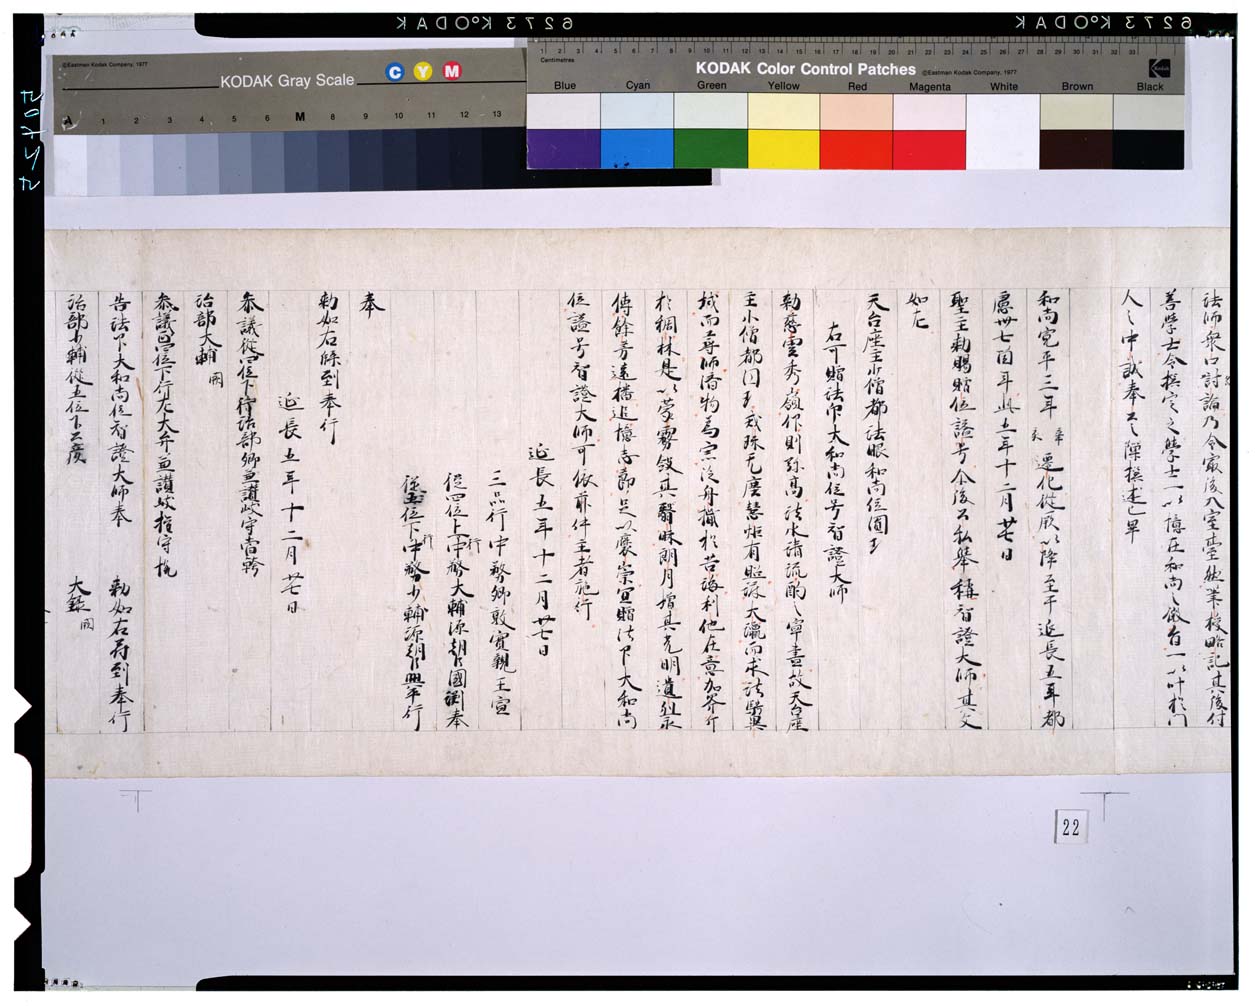 6273 KODAK
6273 KODAK
©Eastman Kodak Company, 1977
KODAK Gray Scale
C Y M
A 1 2 3 4 5 6 M 8 9 10 11 12 13
1 2 3 4 5 6 7 8 9 10 11 12 13 14 15 16 17 18 19 20 21 22 23 24 25 26 27 28 29 30 31 32 33
Centimetres
KODAK Color Control Patches
©Eastman Kodak Company, 1977
Kodak
Blue Cyan Green Yellow Red Magenta White Brown Black
法師衆口討論乃令最後入室臺然筆授略記其後付
善學士令撰定之學士一以憶在和尚之徽旨一以叶於門
人之中誠奉之旨撰述已畢
和尚寛平三年遷化從厥以降至于延長五年都
盧卅七箇年此五年十二月廿七日
聖主勅賜贈位諡号令後公私舉稱智證大師其文
如左
天台座主少僧都法眼和尚位圓珎
右可贈法印大和尚位号智證大師
勅慈雲秀嶺仰則弥高法水清流酌之寧盡故天台座
主少僧都圓珎戒珠无磨慧炬有照渉大瀛而求法騖異
域而尋師濟物為宗泛舟檝於苦海利他在意加斧斤
於稠林是以蒙霧斂其翳昧朗月增其光明遺烈永
傳餘芳遠播追憶志節足以襃崇宜贈法印大和尚
位諡号智證大師可依前件主者施行
延長五年十二月廿七日
三品行中務卿敦實親王宣
從四位上行中務大輔源朝臣國淵奉
從五位下行中務少輔源朝臣興平行
奉
勅如右牒到奉行
延長五年十二月廿七日
參議從四位下行治部卿兼讃岐守當幹
治部大輔 闕
參議四位下行左大弁兼讃岐權守悦
告法印大和尚位智證大師奉 勅如右符到奉行
治部少輔從五位下公廣 大録 闕
22